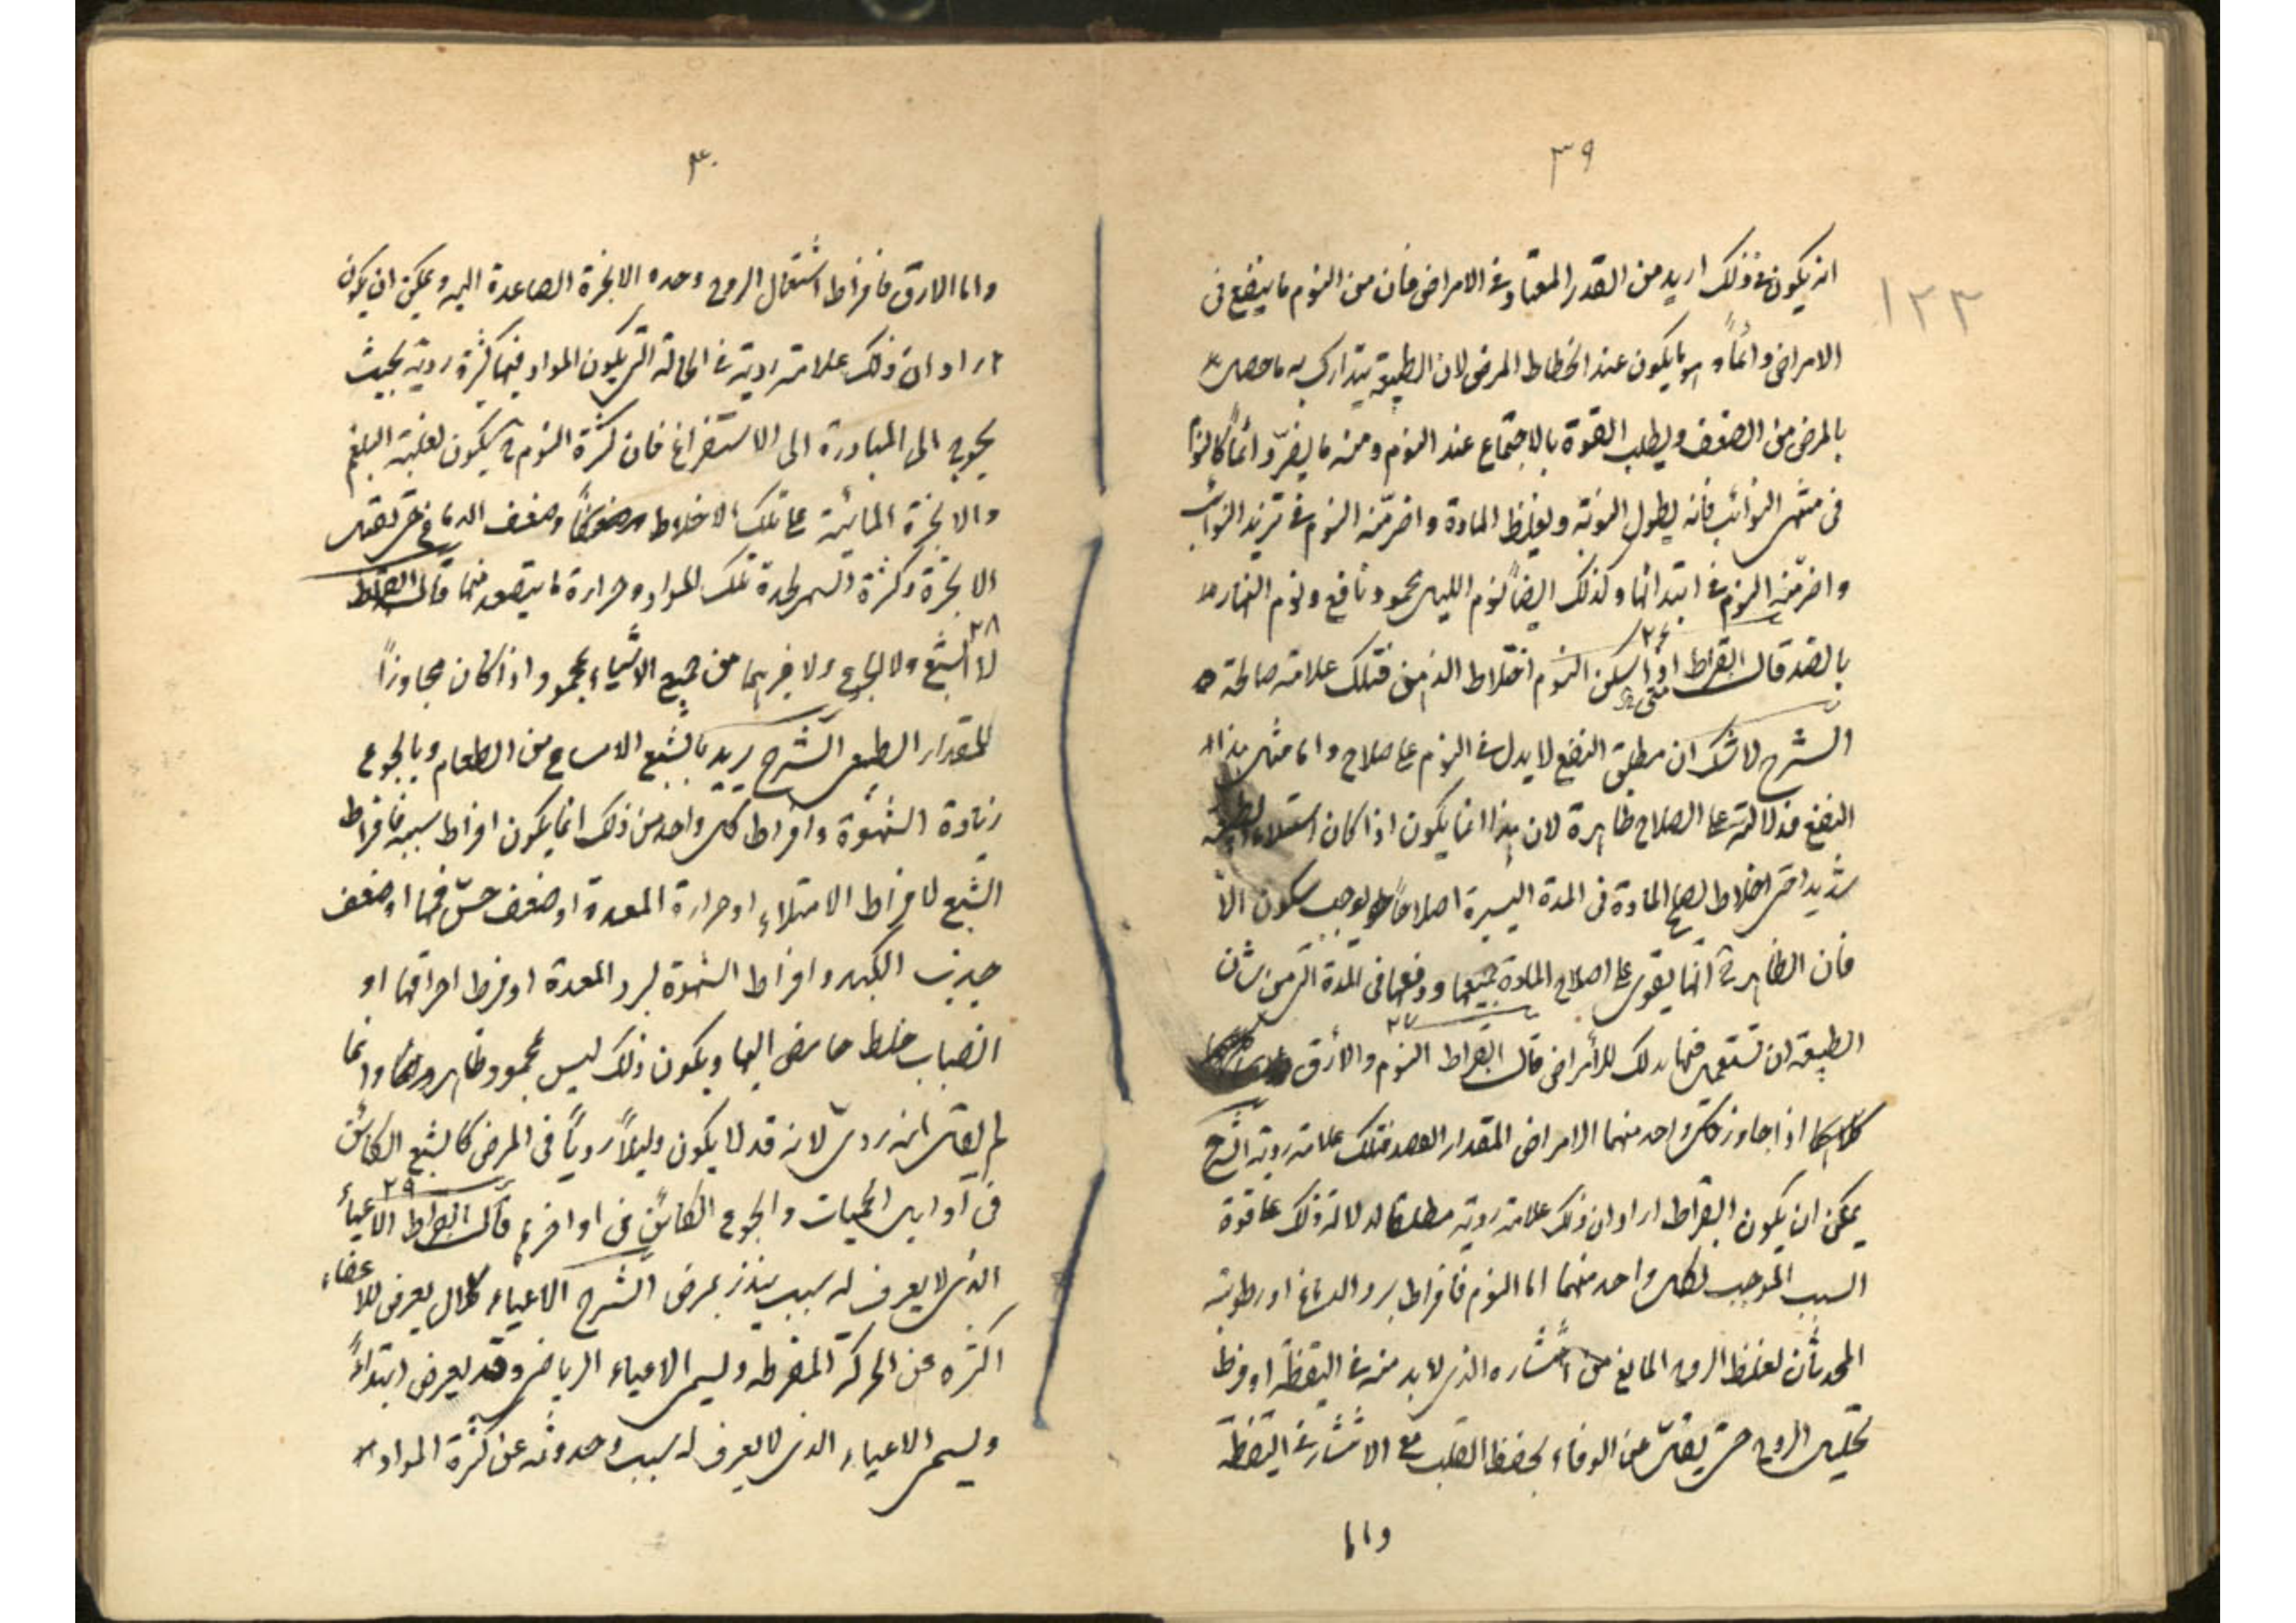 ٣٩
١٢٣
انه يكون في ذلك ازيد من القدر المعتاد في الامراض فان من النوم ما ينفع في
الامراض دائماً و هو ما يكون عند انحطاط المرض لان الطبيعة تتدارك به ما حصل
بالمرض من الضعف ويطلب القوة بالاجتماع عند النوم ومنه ما يضرّ دائماً كالنوم
فى منتهى النوائب فانه يطول النوبة ويغلظ المادة واضرّ منه النوم في تزيد النوائب
واضرّ منه النوم في ابتدائها وكذلك ايضاً نوم الليل محمود نافع ونوم النهار
بالضد قال ابقراط ٢٦ اذا سكن النوم اختلاط الذهن فتلك علامة صالحة
متى
الشرح لا شك ان مطلق النفع لا يدل في النوم على صلاح واما مثل هذا
النفع فدلالته على الصلاح ظاهرة لان هذا انما يكون اذا كان استيلاء الطبيعة
شديدا حتى اصلح المادة فى المدة اليسيرة اصلاحاً يوجب سكون
فان الظاهر انها تقوى على اصلاح المادة جميعها ودفعها فى المدة التى من شان
الطبيعة ان تستعمل فيها بذلك للأمراض قال ابقراط ٢٧ النوم والأرق
اذا جاوز كل واحد منهما الامراض المقدار القصد فتلك علامة ردية الشرح
يمكن ان يكون ابقراط اراد ان ذلك علامة ردية مطلقا لدلالة ذلك على قوة
السبب الموجب لكل واحد منهما اما النوم فافراط برد الدماغ او رطوبته
المحدثان لغلظ الروح المانع من انتشاره الذى لابد منه في اليقظة او فرط
تحليل الروح حتى يقلّ عن الوفاء بحفظ القلب مع الانتشار في اليقظة
واما
٤٠
واما الارق فافراط اشتعال الروح وحده الابخرة الصاعدة اليه ويمكن ان يكون
اراد ان ذلك علامة ردية في الحالة التى يكون المواد فيها كثيرة ردية بحيث
يحوج الى المبادرة الى الاستفراغ فان كثرة النوم ح يكون لغلبة البلغم
والابخرة المائية على تلك الاخلاط وضعف الدماغ حتى تقبل
الابخرة وكثرة السهر لحدة تلك المواد وحرارة ما يتصعد منها قال ابقراط
٢٨ لا الشبع ولا الجوع ولا غيرهما من جميع الاشياء بمحمود اذا كان مجاوزاً
للمقدار الطبيعى الشرح يريد بالشبع الامساك من الطعام وبالجوع
زيادة الشهوة وافراط كل واحد من ذلك انما يكون افراط سببه فافراط
الشبع لافراط الامتلاء او حرارة المعدة او ضعف حسّ فمها او ضعف
جذب الكبد وافراط الشهوة لبرد المعدة او فرط احراقها او
انصباب خلط حامض اليها ويكون ذلك ليس بمحمود ظاهر وانما
لم يقل انه ردى لانه قد لا يكون دليلاً رديّاً فى المرض كالشبع الكائن
فى اوايل الحميات والجوع الكائن فى اواخرها قال ابقراط ٢٩ الاعياء
الذى لا يعرف له سبب ينذر بمرض الشرح الاعياء كلال يعرض للاعضاء
اكثره عن الحركة المفرطه ويسمى الاعياء الرياضى وقد يعرض ابتداءً
ويسمى الاعياء الذى لا يعرف له سبب وحدوثه عن كثرة المواد